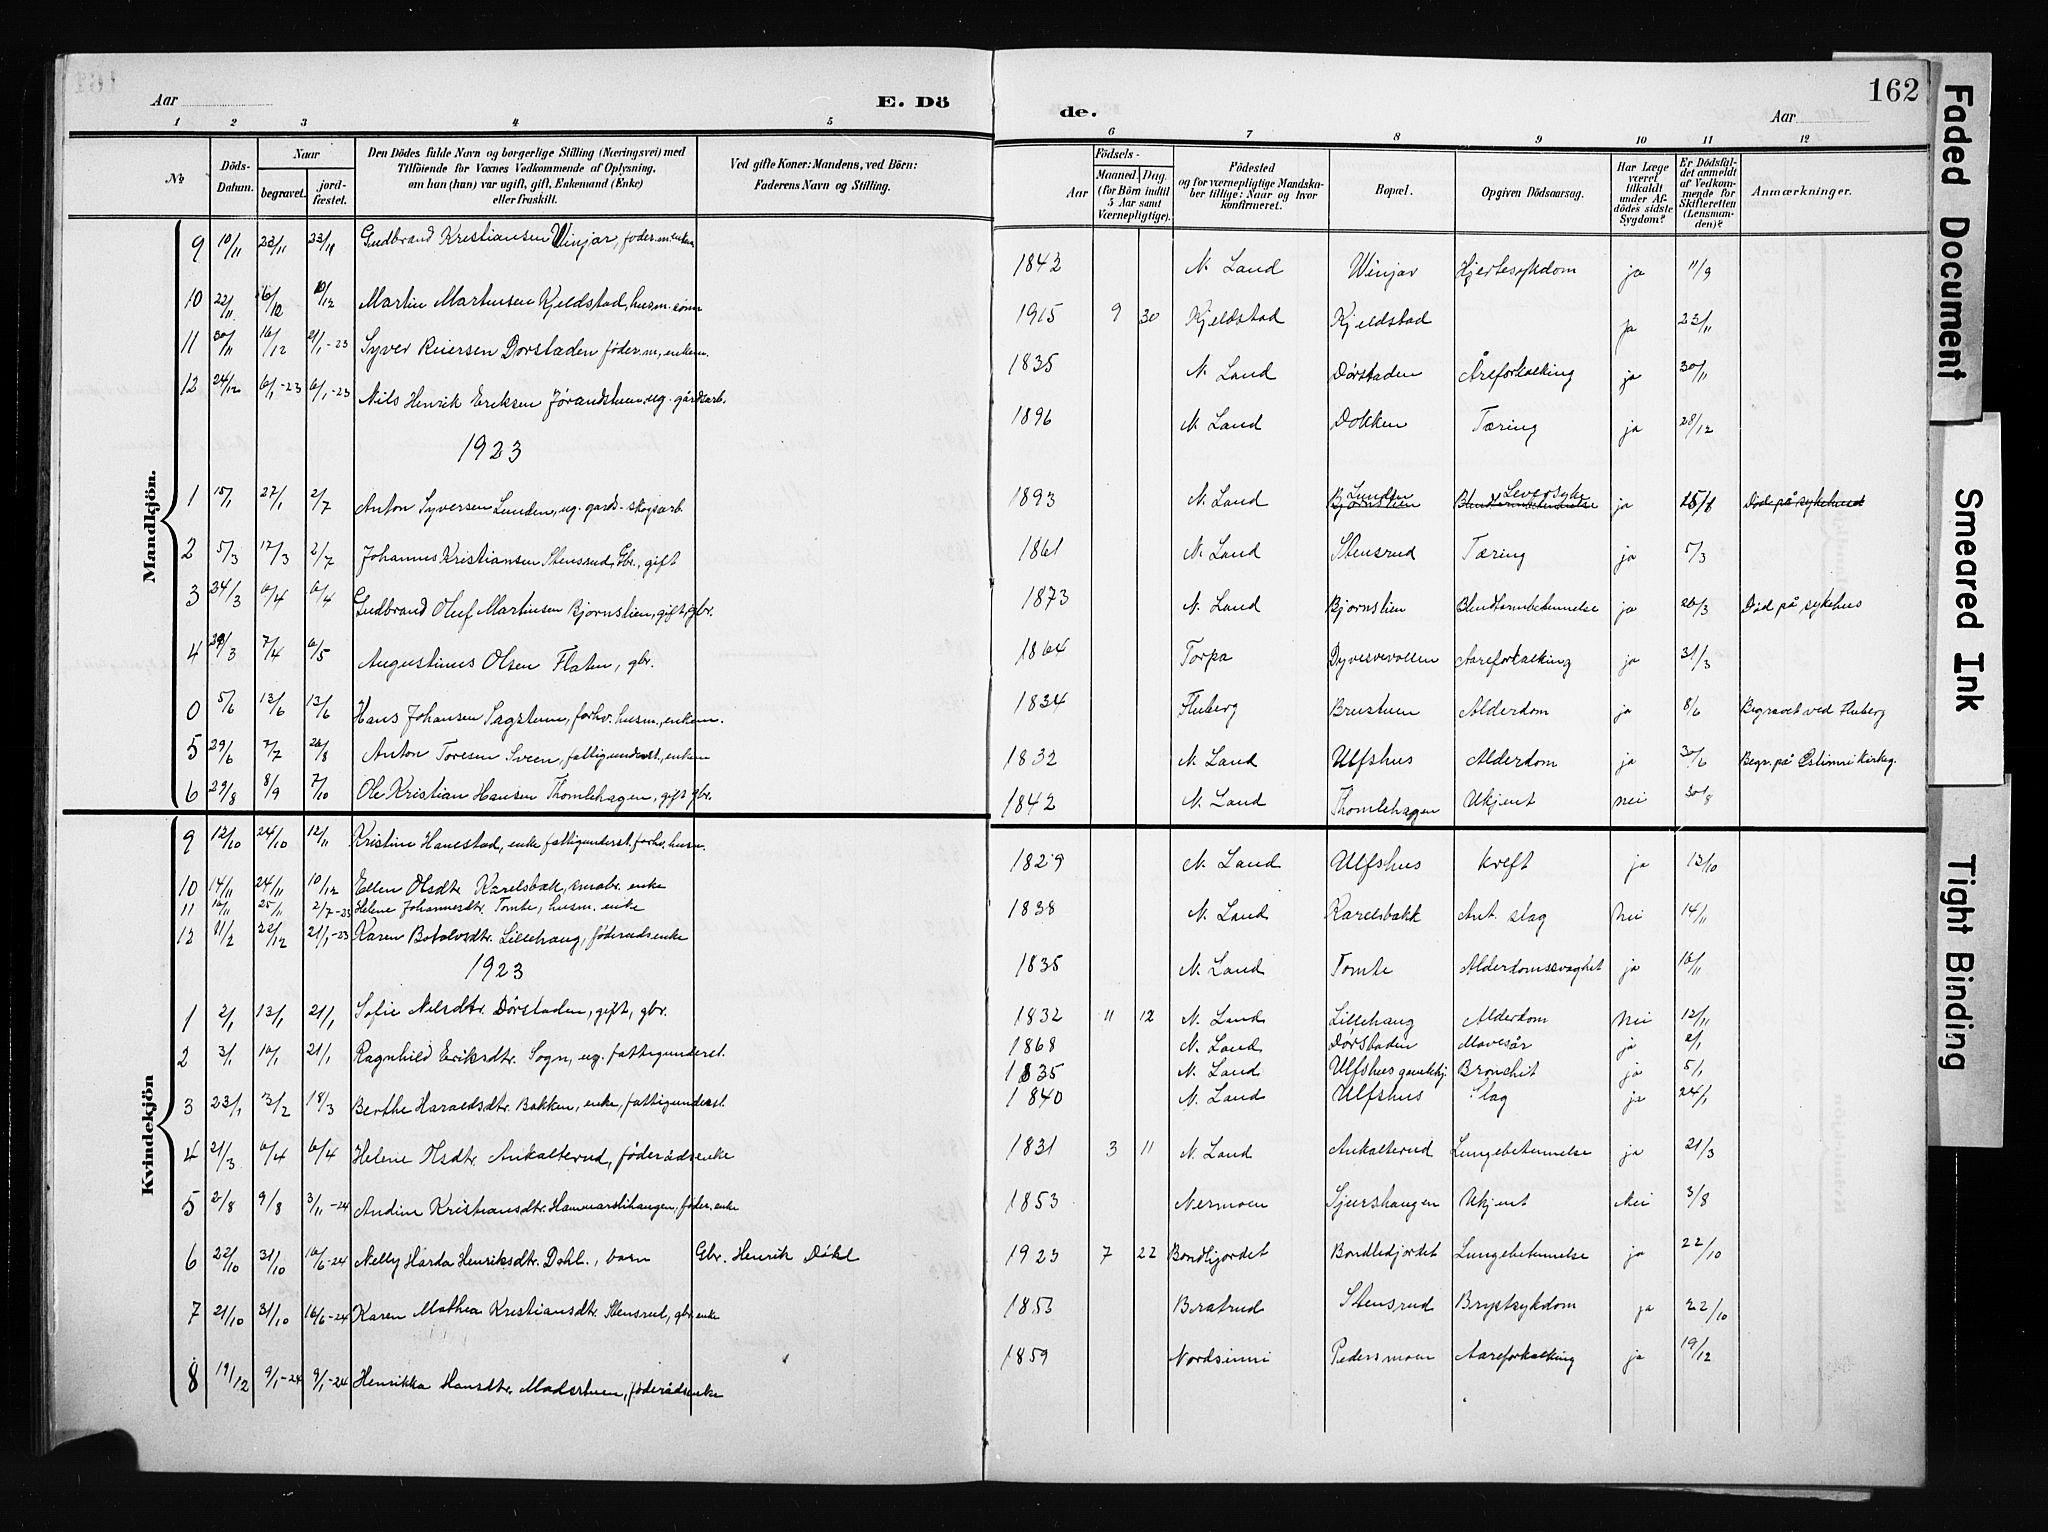 Aar
E. Dö
de.
Aar
162
1 2 3 4 5 6 7 8 9 10 11 12
№
Döds-Datum.
Naar
begravet.
jord-fæstet.
Den Dödes fulde Navn og borgerlige Stilling (Næringsvei) med
Tilföiende for Voxnes Vedkommende af Oplysning,
om han (hun) var ugift, gift, Enkemand (Enke)
eller fraskilt.
Ved gifte Koner: Mandens, ved Börn:
Faderens Navn og Stilling.
Födsels-
Aar
Maaned. Dag.
(for Börn indtil 5 Aar samt Værnepligtige).
Födested
og for værnepligtige Mandska-
ber tillige: Naar og hvor
konfirmeret.
Bopæl.
Opgiven Dödsaarsag.
Har Læge været tilkaldt under Afdödes sidste Sygdom?
Er Dödsfaldet anmeldt af Vedkommende for Skifteretten (Lensmanden)?
Anmærkninger.
Mandkjön.
9 10/11 23/11 23/11 Gudbrand Kristiansen Winjar, foder.m. enkem. 1842 N. Land Winjar Hjertesykdom ja 11/9
10 22/11 16/12 10/12 Martin Martinsen Kjeldstad, husm. sönn 1915 9 30 Kjeldstad Kjeldstad ja 23/11
11 30/11 16/12 21/1-23 Syver Reiersen Dorstaden föder.m., enkem. 1835 N. Land Dörstaden Åreforkalking ja 30/11
12 24/12 6/1-23 6/1-23 Nils Henrik Eriksen Jørandstuen, ug. gårdsarb. 1896 N. Land Dokken Tæring ja 28/12
1923
1 15/1 27/1 2/7 Anton Syversen Lunden, ug. gards- skogsarb. 1893 N. Land Bjørnstien Lunden Blindtarmbetennelse Leversyke ja 15/8 Död på sykehuset
2 5/3 17/3 2/7 Johannes Kristiansen Stensrud, Gbr., gift 1861 N. Land Stensrud Tæring ja 5/3
3 24/3 6/4 6/4 Gudbrand Oluf Martinsen Bjornstien, gift, gbr. 1873 N. Land Bjornstien Blindtarmbetennelse ja 26/3 Död på sykehus
4 29/3 7/4 6/5 Augustinus Olsen Flaten, gbr. 1864 Torpa Dyvesvevollen Aareforkalking ja 31/3
0 5/6 13/6 13/6 Hans Johansen Sagstuen, forhv. husm., enkem. 1834 Fluberg Brustuen Alderdom ja 8/6 Begravet ved Fluberg
5 29/6 7/7 26/8 Anton Toresen Sveen, fattigunderst., enkem 1832 N. Land Ulfshus Alderdom ja 30/6 Begr. på Østsinni kirkeg.
6 29/8 8/9 7/10 Ole Kristian Hansen Thomlehagen, gift gbr. 1842 N. Land Thomlehagen Ukjent nei 30/8
Kvindekjön
9 12/10 24/10 12/11 Kristine Hanestad, enke fattigunderst. forhv. husm. 1829 N. Land Ulfshus Kreft ja 13/10
10 14/11 24/11 10/12 Ellen Olsdtr. Karelsbæk, småbr. enke 1838 N. Land Karelsbakk Ant. slag Nei 14/11
11 16/11 25/11 2/7-23 Helene Johannesdtr. Tomte, husm. enke 1835 N. Land Tomte Alderdomssvaghet ja 16/11
12 11/2 22/12 21/1-23 Karen Botolvsdtr. Lillehaug, föderadsenke
1923
1832 11 12 N. Land Lillehaug Alderdom Nei 12/11
1 2/1 13/1 21/1 Sofie Nilsdtr. Dörstaden, gift, gbr. 1868 N. Land Dörstaden Mavesår ja 2/1
2 3/1 16/1 21/1 Ragnhild Eriksdtr. Sogn, ug. fattigunderst. 1835 N. Land Ulfshus gamlehj. Bronchit ja 5/1
3 23/1 3/2 18/3 Berthe Haraldsdtr. Bakken, enke, fattigunderst. 1840 N. Land Ulfshus Slag ja 24/1
4 21/3 6/4 6/4 Helene Olsdtr. Ankalterud, föderådsenke 1831 3 11 N. Land Ankalterud Lungebetennelse ja 21/3
5 2/8 9/8 3/11-24 Andine Kristiansdtr. Hammarstihaugen, föder. enke 1853 Nermoen Sjurshaugen Ukjent Nei 3/8
6 22/10 31/10 16/6-24 Nelly Harda Henriksdtr. Dahl., barn Gbr. Henrik Döhl 1923 7 22 Bondligordet Bondlidjordet Lungebetennelse ja 22/10
7 21/10 31/10 16/6-24 Karen Mathea Kristiansdtr. Stensrud, gbr. enke 1853 Beratrud Stensrud Brystsykdom ja 22/10
8 19/12 9/1-24 9/1-24 Henrikka Hansdtr. Madsstuen, föderådsenke 1859 Nordsinni Pedersmoen Aareforkalking ja 19/12
Faded Document
Smeared Ink
Tight Binding